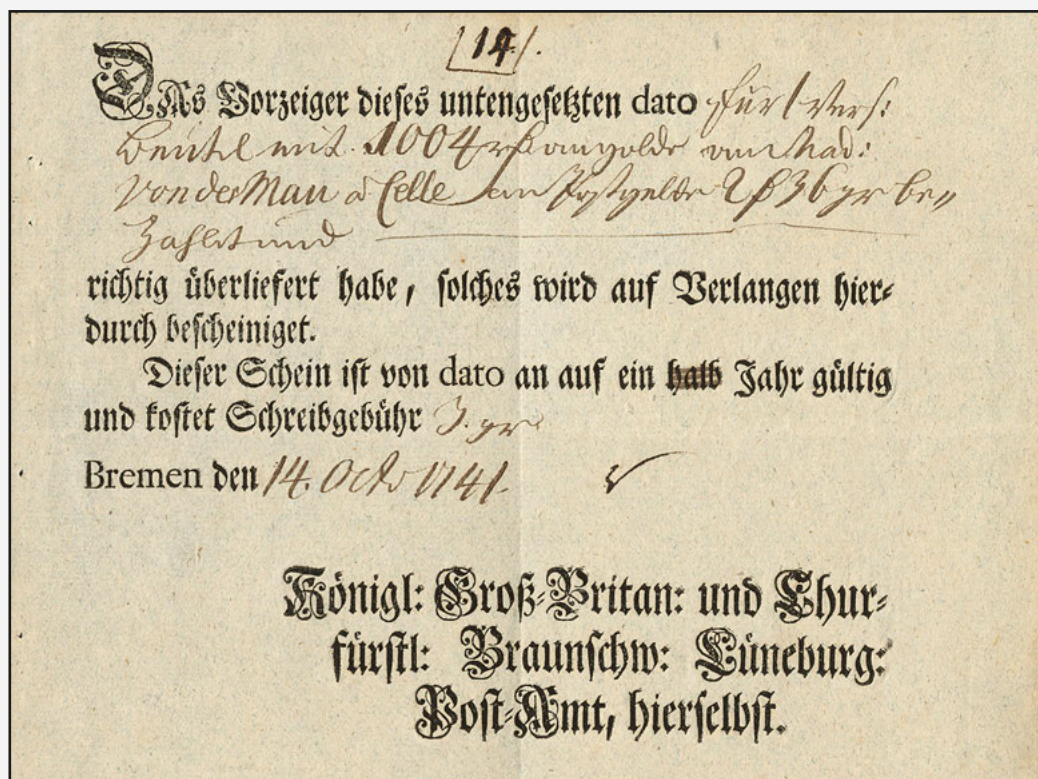 14.
DAs Vorzeiger dieses untengesetzten dato für 1 Vers:
Beutel mit 1004 rh an golde an Mad:
von der Mau a Celle an Postgelde 2 36 gr be-
zahlt und
richtig überliefert habe, solches wird auf Verlangen hier-
durch bescheiniget.
Dieser Schein ist von dato an auf ein halb Jahr gültig
und kostet Schreibgebühr 3. gr
Bremen den 14. Octo 1741.
Königl: Groß-Britan: und Chur-
fürstl: Braunschw: Lüneburg:
Post-Amt, hierselbst.